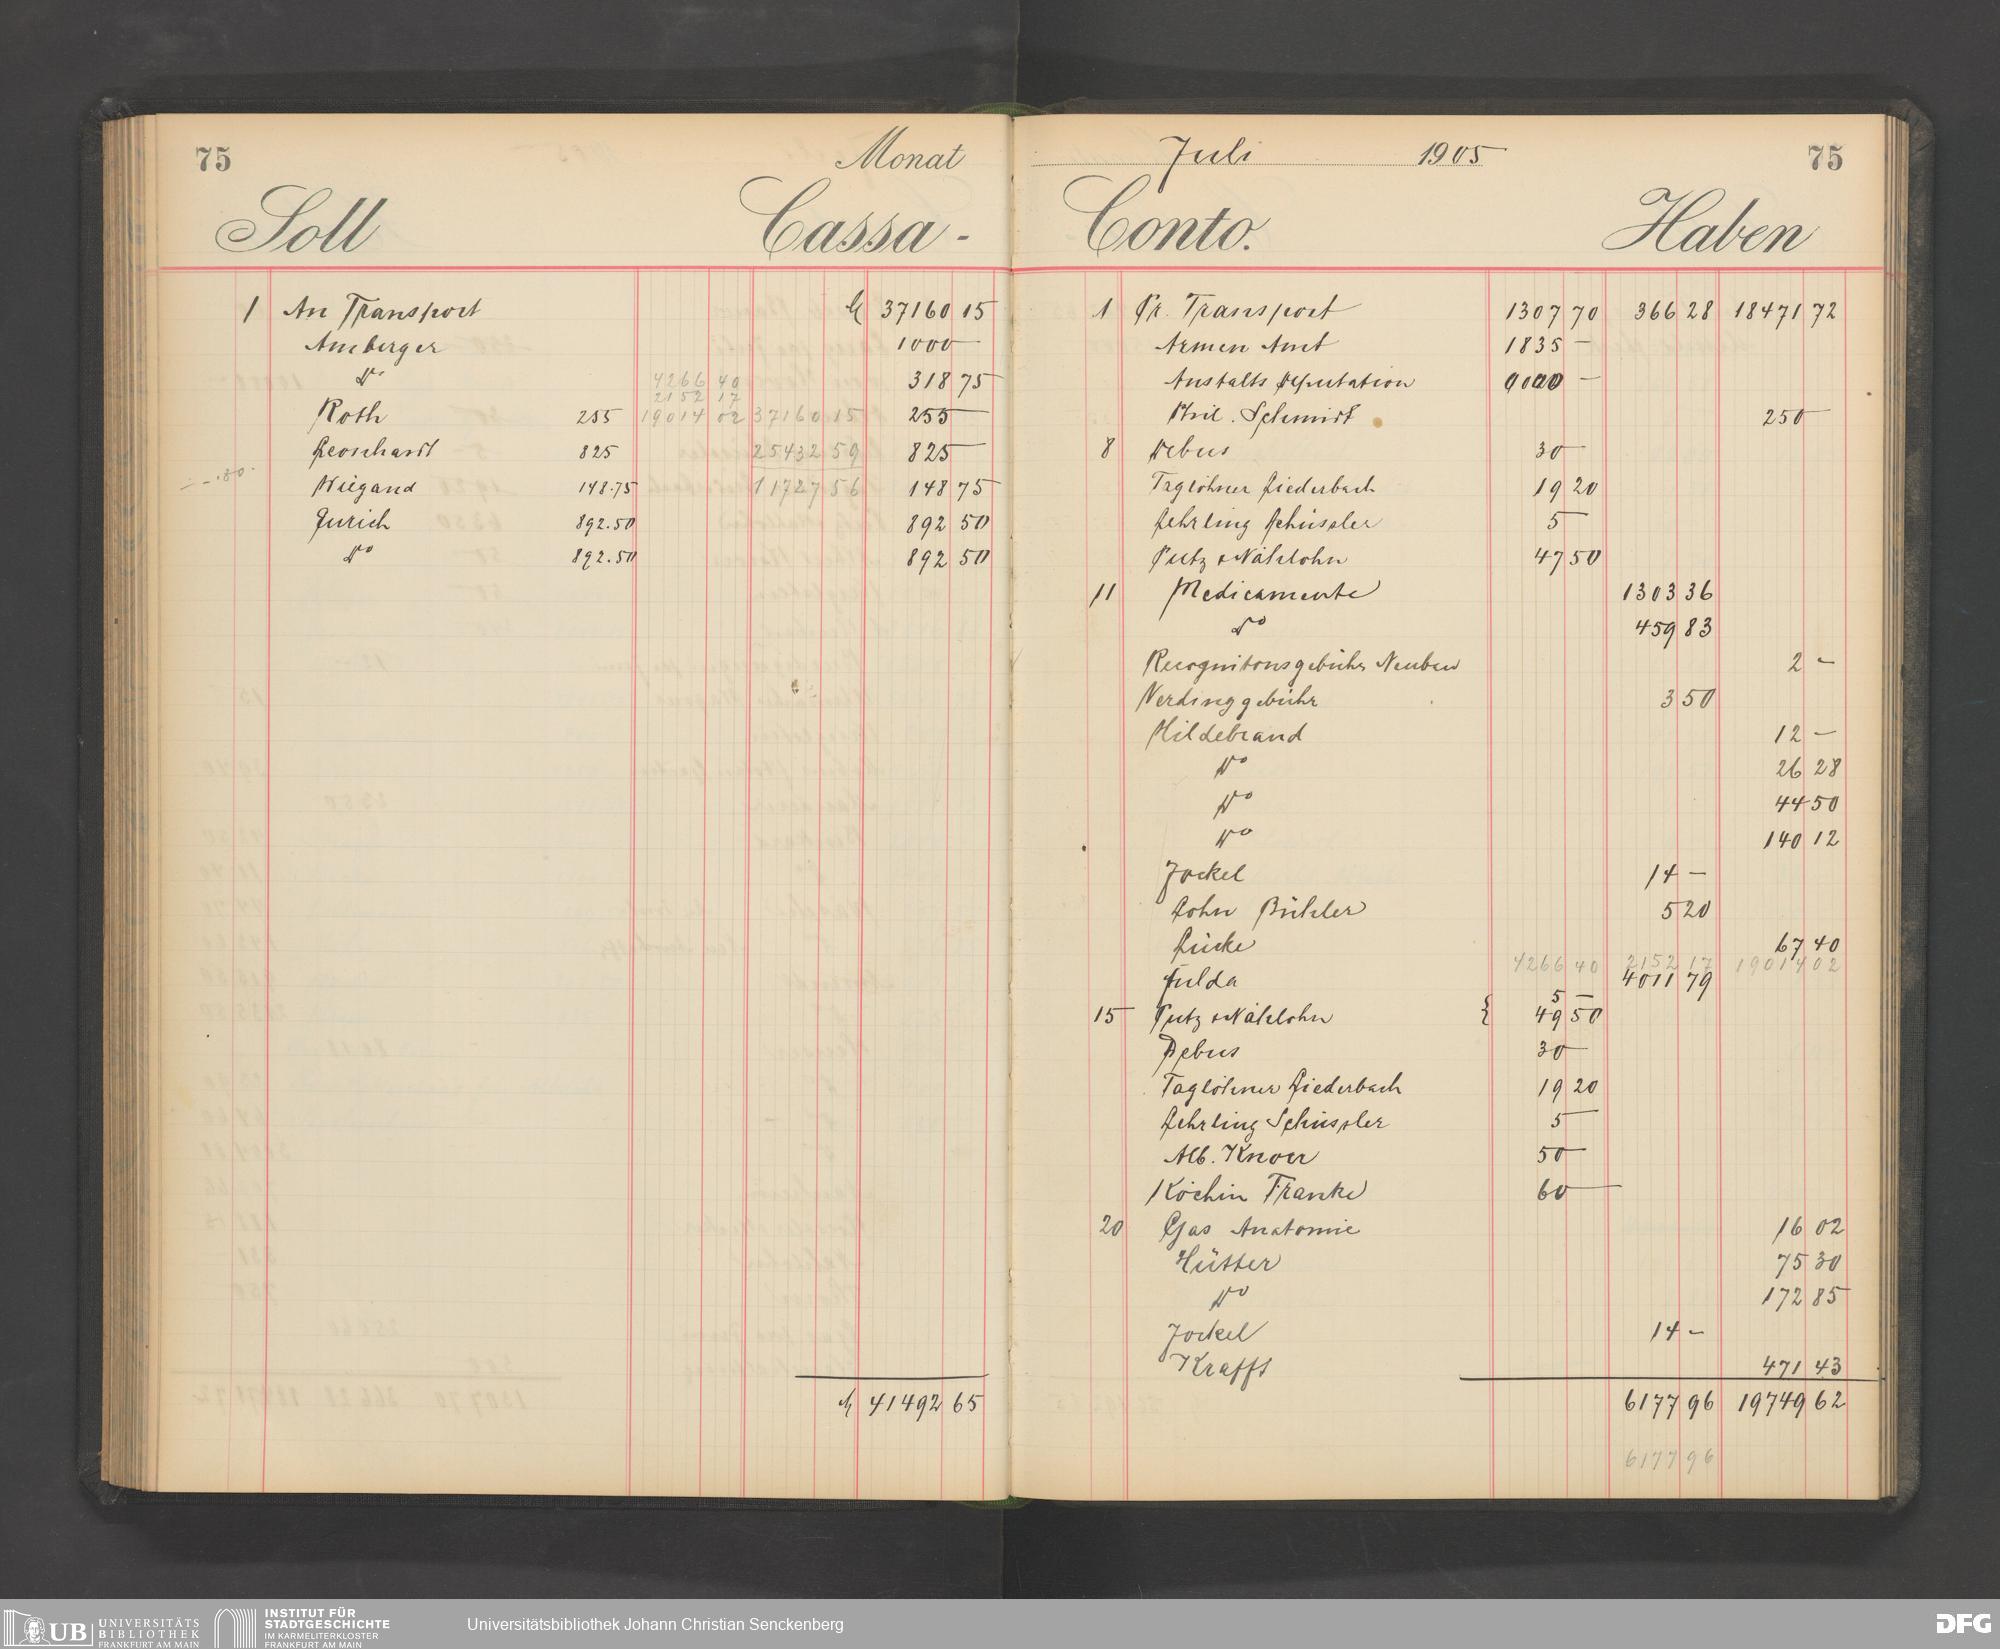 75
Monat
Soll
Cassa -
1 An Transport M 37160 15
Amberger 1000 —
do 4266 40 318 75
2152 17
Roth 255 19014 02 37160 15 255 —
825 25432 59 825 —
Wiegand 148.75 11727 56 148 75
892.50 892 50
do 892.50 892 50
M 41492 65
Juli 1905
75
Conto.
Haben
1 Pr. Transport 1307 70 366 28 18471 72
Armen Amt 1835 —
Anstalts Deputation —
Phil. Schmidt 250 —
8 Debus 30 —
Taglöhner Liederbach 19 20
Lehrling Schüssler 5 —
Putz & Nählohn 47 50
11 Medicamente 1303 36
do 459 83
Recognitonsgebühr Neubau 2 —
Verdinggebühr 3 50
Hildebrand 12 —
do 26 28
do 44 50
do 140 12
Jockel 14 —
Lohn Bühler 5 20
Lücke 67 40
4266 40 2152 17 19014 02
Fulda 4011 79
5 —
15 Putz & Nählohn { 49 50
Debus 30 —
Taglöhner Liederbach 19 20
Lehrling Schüssler 5 —
Alb. Knorr 50 —
Köchin Franke 60 —
20 Gas Anatomie 16 02
Hütter 75 30
do 172 85
Jockel 14 —
Krafft 471 43
6177 96 19749 62
6177 96
UB UNIVERSITÄTS
BIBLIOTHEK
FRANKFURT AM MAIN
INSTITUT FÜR
STADTGESCHICHTE
IM KARMELITERKLOSTER
FRANKFURT AM MAIN
Universitätsbibliothek Johann Christian Senckenberg
DFG